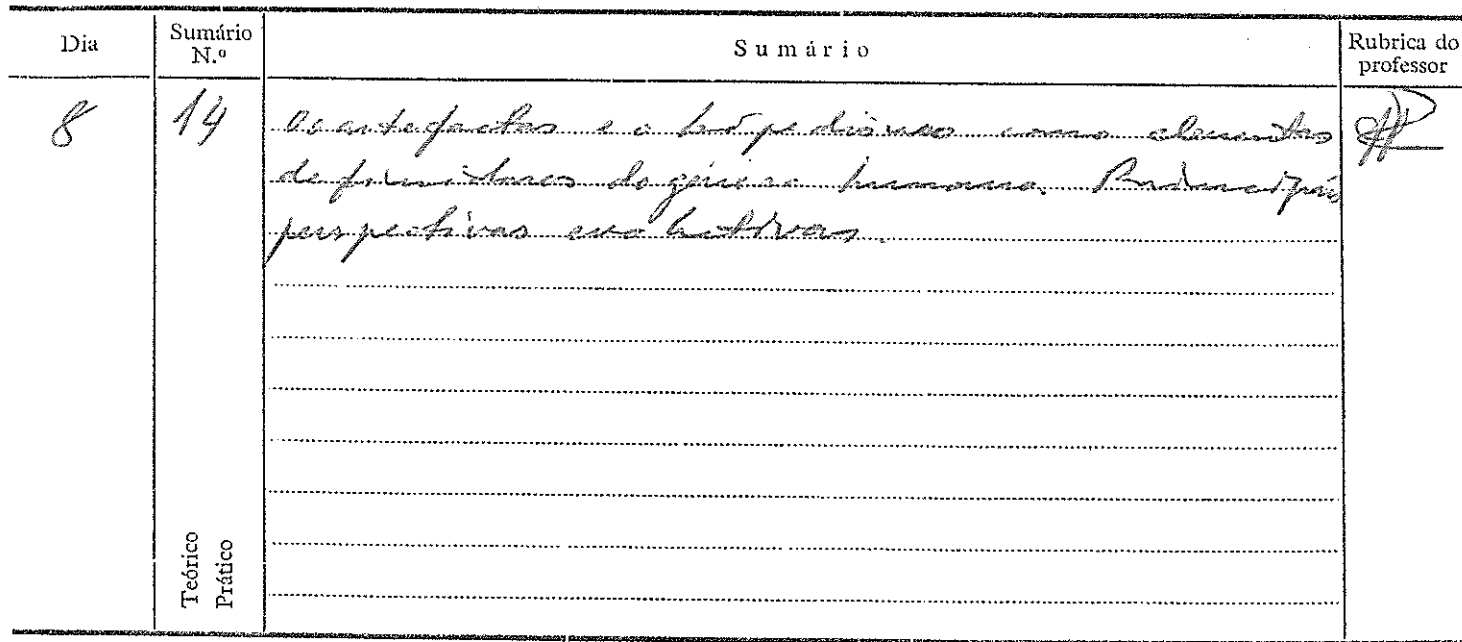 Dia
Sumário N.º
Sumário
Rubrica do professor
8
14
Os artefactos e o bipedismo como elementos
definidores do género humano. Principais
perspectivas evolutivas.
Teórico
Prático